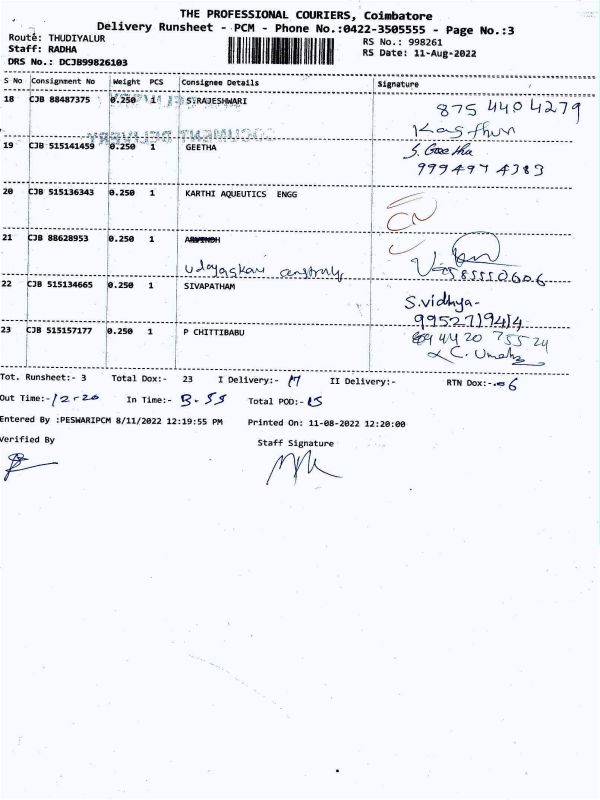 THE PROFESSIONAL COURIERS, Coimbatore
Delivery Runsheet - PCM - Phone No.:0422-3505555 - Page No.:3
Route: THUDIYALUR
RS No.: 998261
Staff: RADHA
RS Date: 11-Aug-2022
DRS No.: DCJB99826103
S No Consignment No Weight PCS Consignee Details Signature
18 CJB 88487375 0.250 1 S.RAJESHWARI 875 440 4279
Kasthuri
DOCUMENT DELIVERY
19 CJB 515141459 0.250 1 GEETHA S. Geetha
999497 4383
20 CJB 515136343 0.250 1 KARTHI AQUEUTICS ENGG
21 CJB 88628953 0.250 1 ARVINDH
22 CJB 515134665 0.250 1 SIVAPATHAM S.vidhya-
9952719414
23 CJB 515157177 0.250 1 P CHITTIBABU 944420 755 24
Tot. Runsheet:- 3 Total Dox:- 23 I Delivery:- 17 II Delivery:- RTN Dox:- 06
Out Time:- 12-20 In Time:- 3-55 Total POD:- 15
Entered By :PESWARIPCM 8/11/2022 12:19:55 PM Printed On: 11-08-2022 12:20:00
Verified By Staff Signature